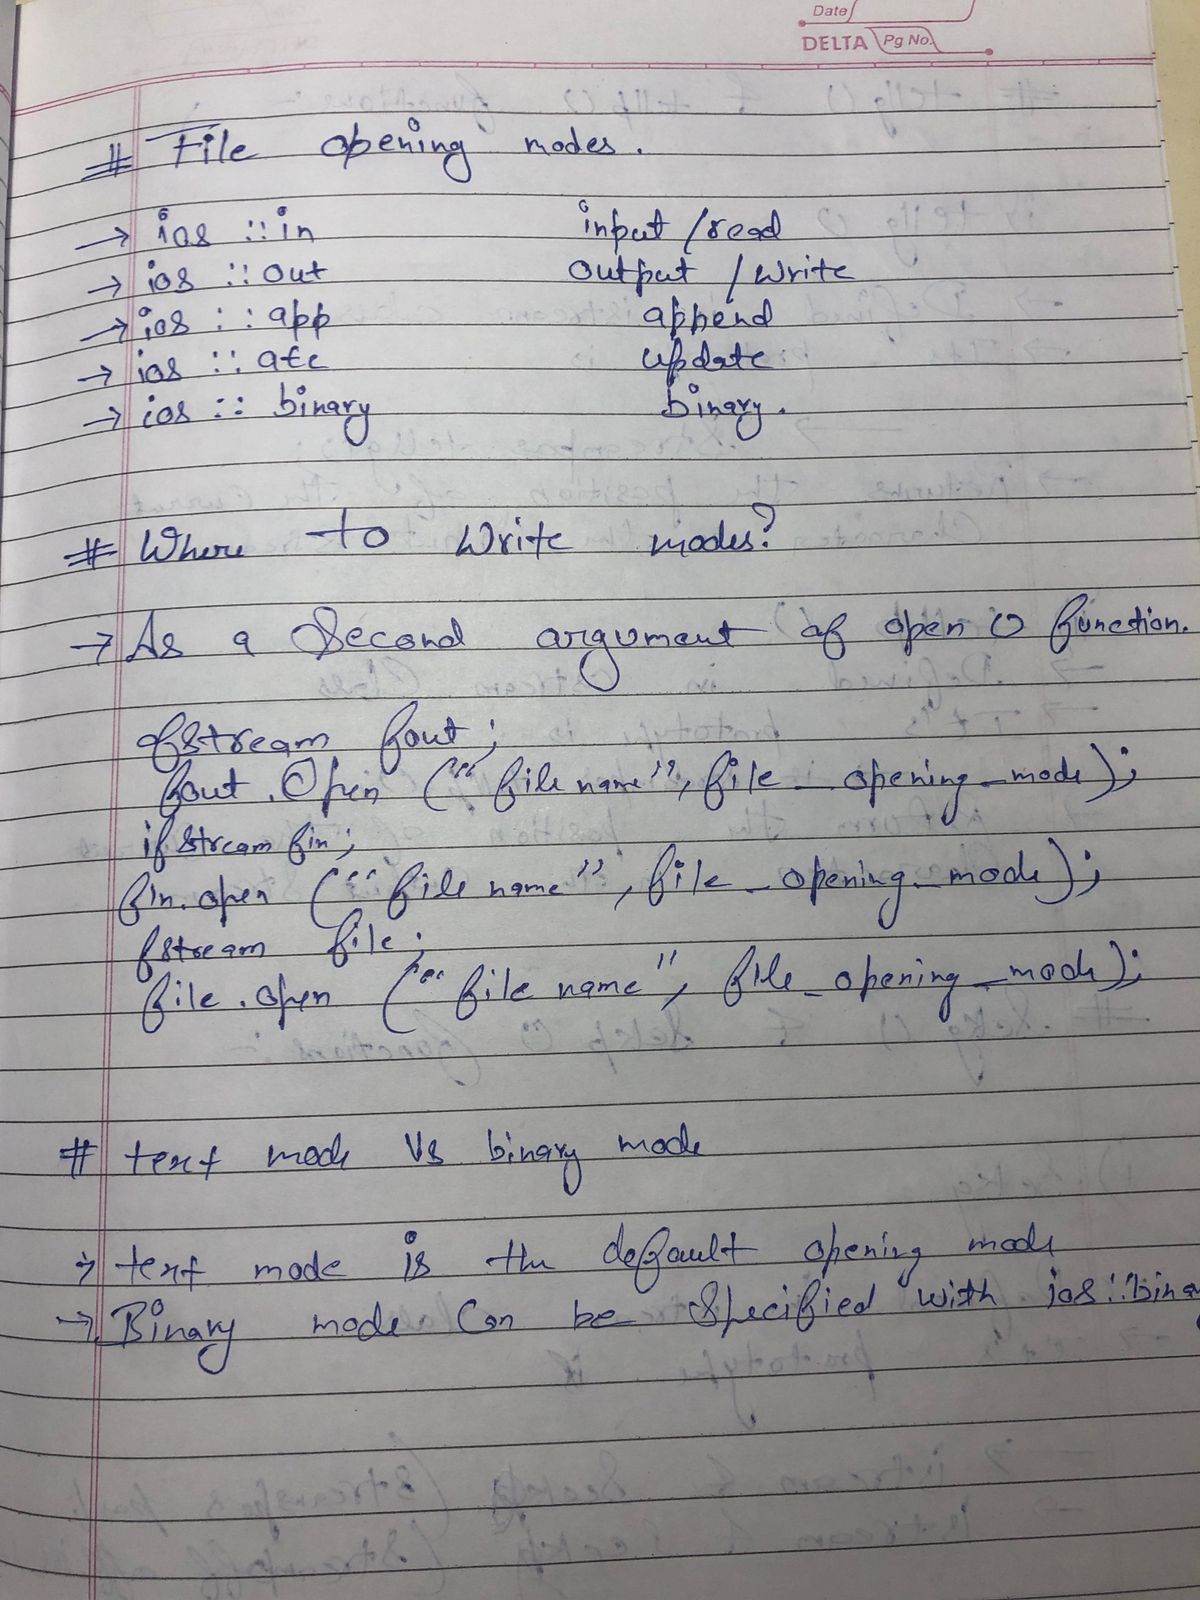 Date
DELTA Pg No.
# File opening modes.
→ ios :: in input / read
→ ios :: out output / write
→ ios :: app append
→ ios :: ate update
→ ios :: binary binary.
# Where to Write modes?
→ As a Second argument of open () function.
ofstream fout;
fout.Open ("file name", file_opening_mode);
ifstream fin;
fin.open ("file name", file_opening_mode);
fstream file;
file.open ("file name", file_opening_mode);
# text mode Vs binary mode
→ text mode is the default opening mode
→ Binary mode Can be Specified with ios::bina